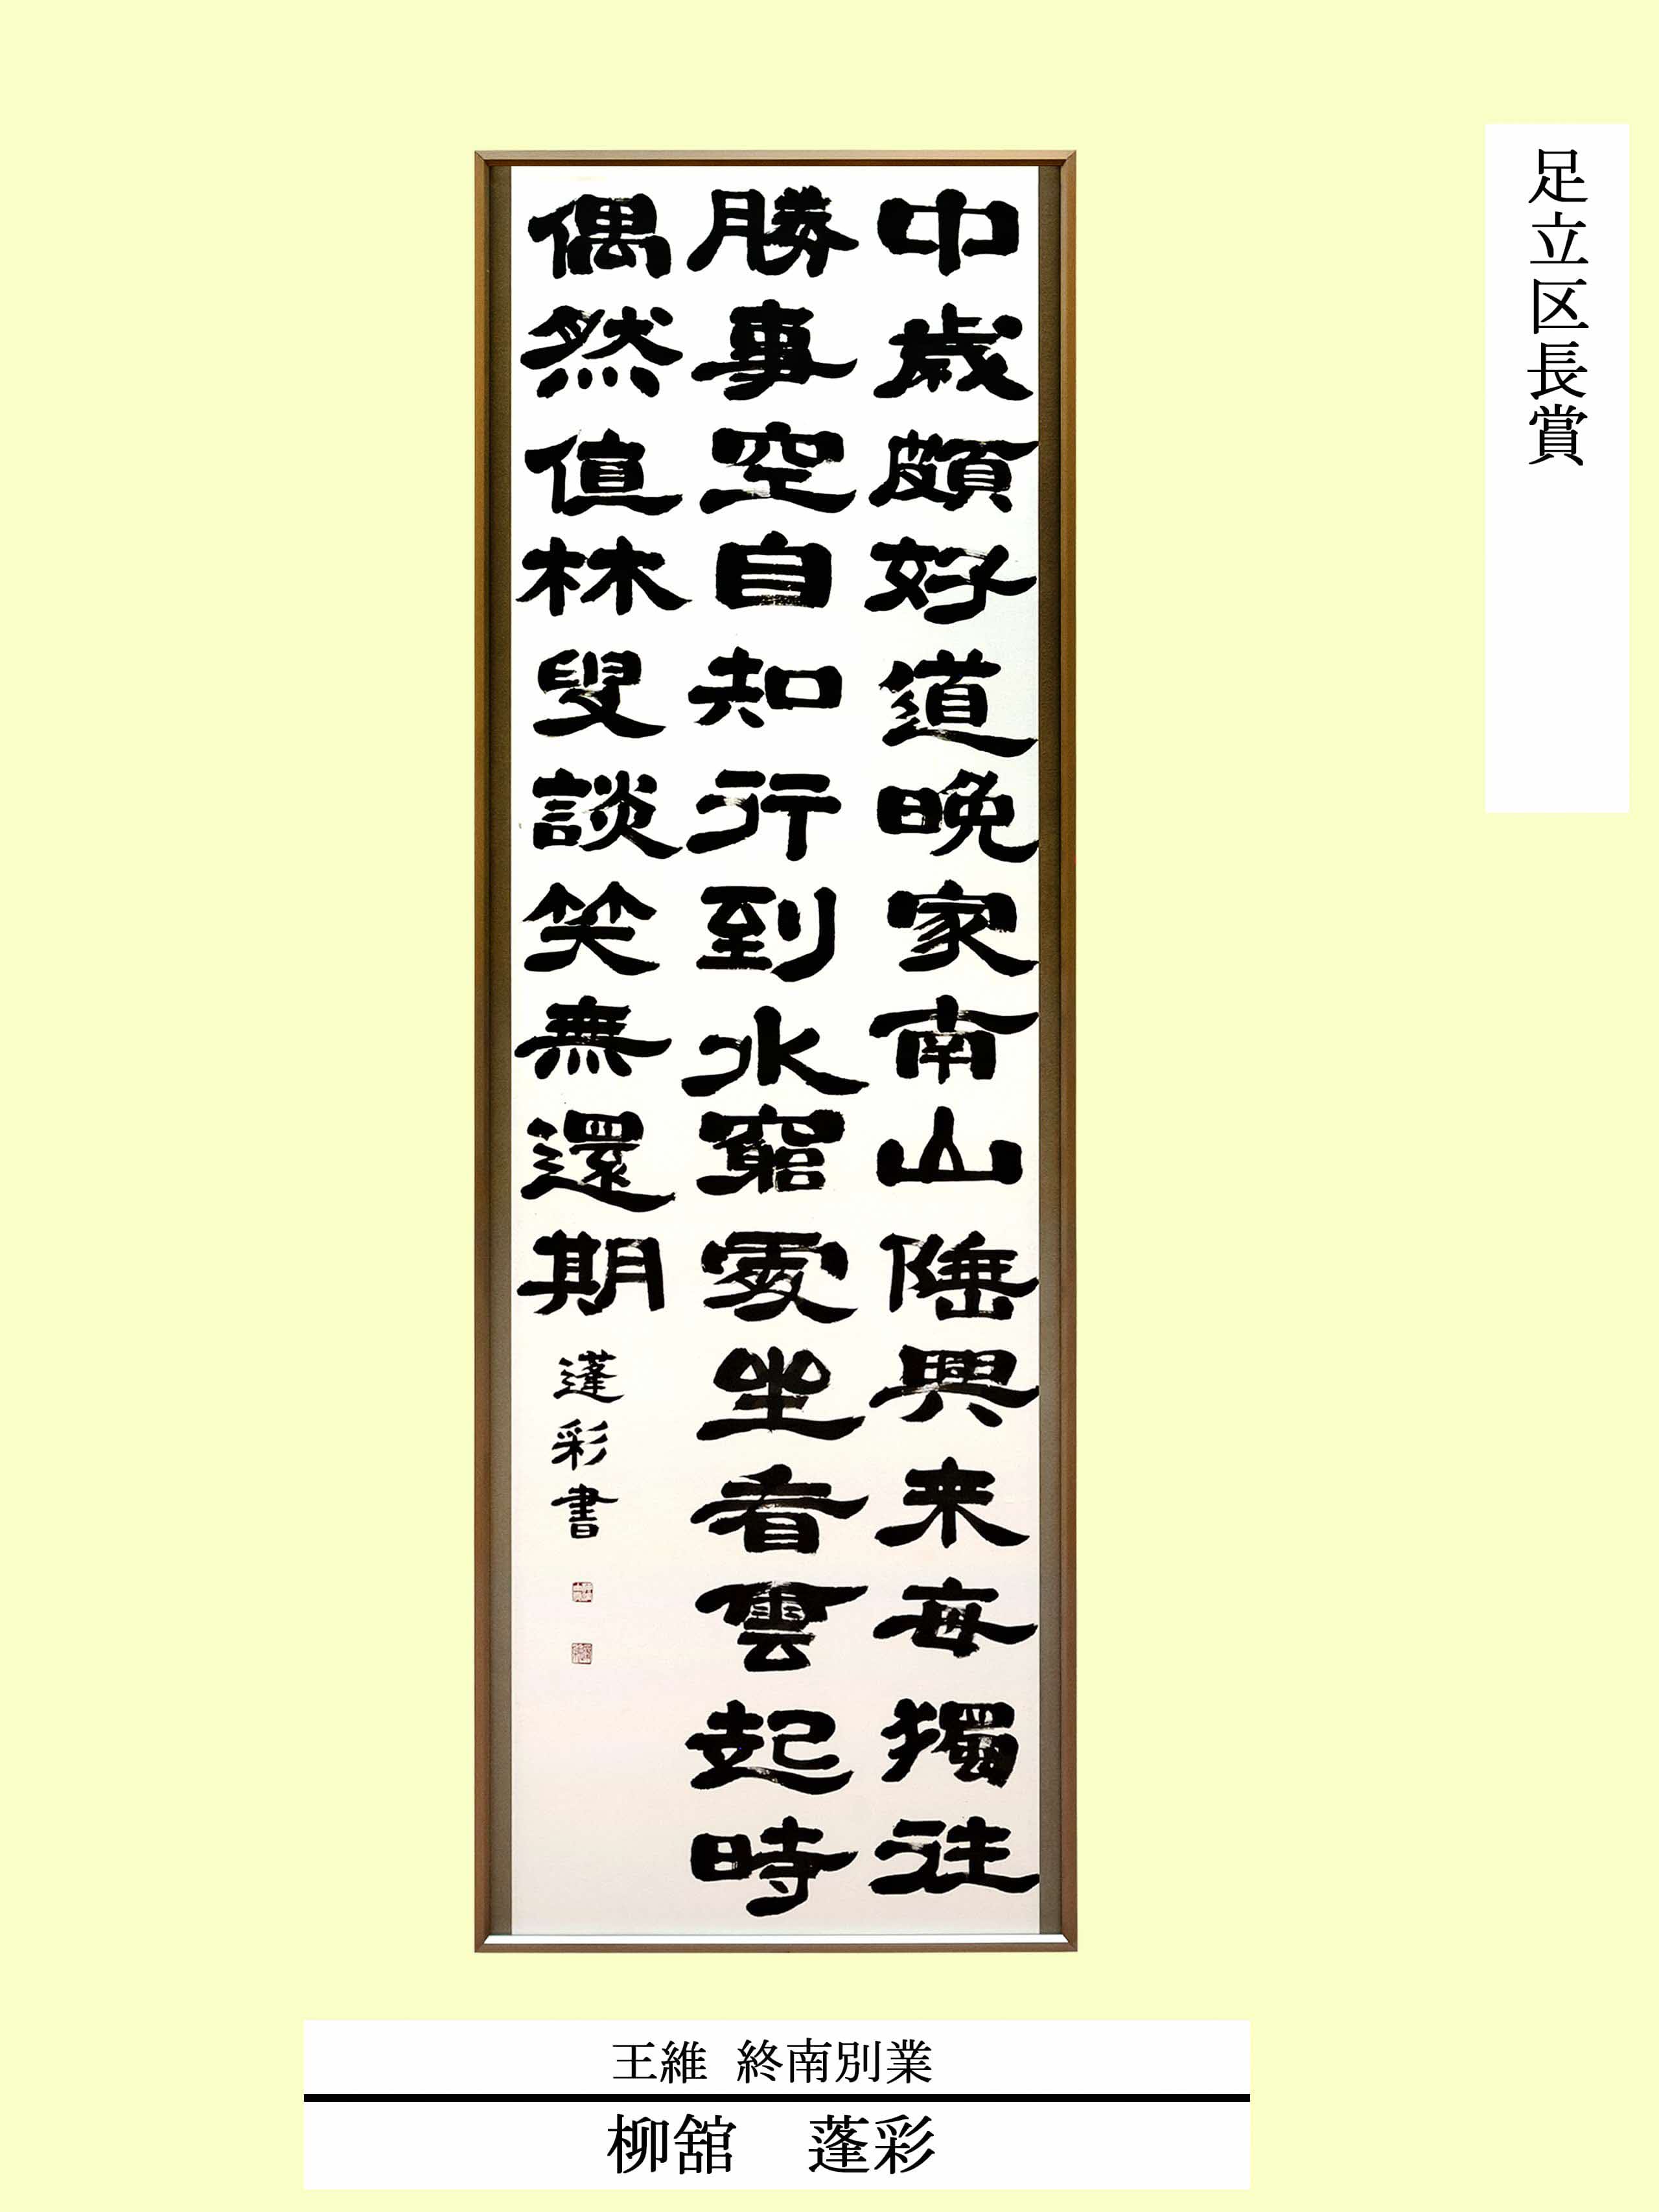 足立区長賞
中歳頗好道晩家南山陲興来毎獨往
勝事空自知行到水窮處坐看雲起時
偶然値林叟談笑無還期
蓬彩書
王維 終南別業
柳舘 蓬彩